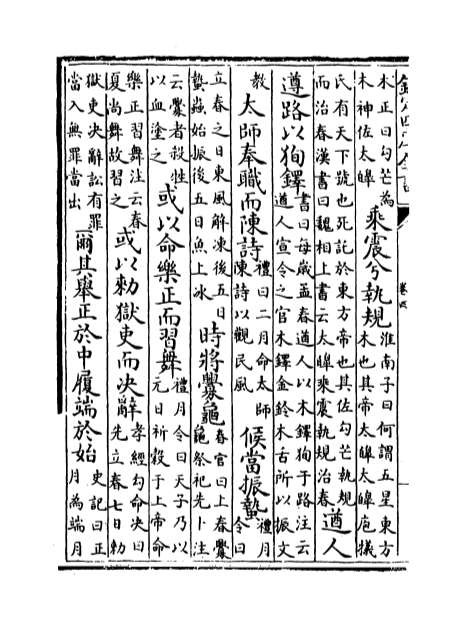 欽定四庫全書
卷四
木正曰勾芒為
木神佐太皞
乘震兮執規
淮南子曰何謂五星東方
木也其帝太皞太皞庖犧
氏有天下號也死託於東方帝也其佐勾芒執規
而治春漢書曰魏相上書云太皞乘震執規治春
遒人
遵路以狥鐸
書曰每歲孟春遒人以木鐸狥于路注云
遒人宣令之官木鐸金鈴木舌所以振文
教
太師奉職而陳詩
禮曰二月命太師
陳詩以觀民風
候當振蟄
禮月
令曰
立春之日東風解凍後五日
蟄蟲始振後五日魚上冰
時將釁龜
春官曰上春釁
龜祭祀先卜注
云釁者殺牲
以血塗之
或以命樂正而習舞
禮月令曰天子乃以
元日祈穀于上帝命
樂正習舞注云春
夏尚舞故習之
或以勅獄吏而决辭
孝經勾命决曰
先立春七日勅
獄吏决辭訟有罪
當入無罪當出
爾其舉正於中履端於始
史記曰正
月為端月